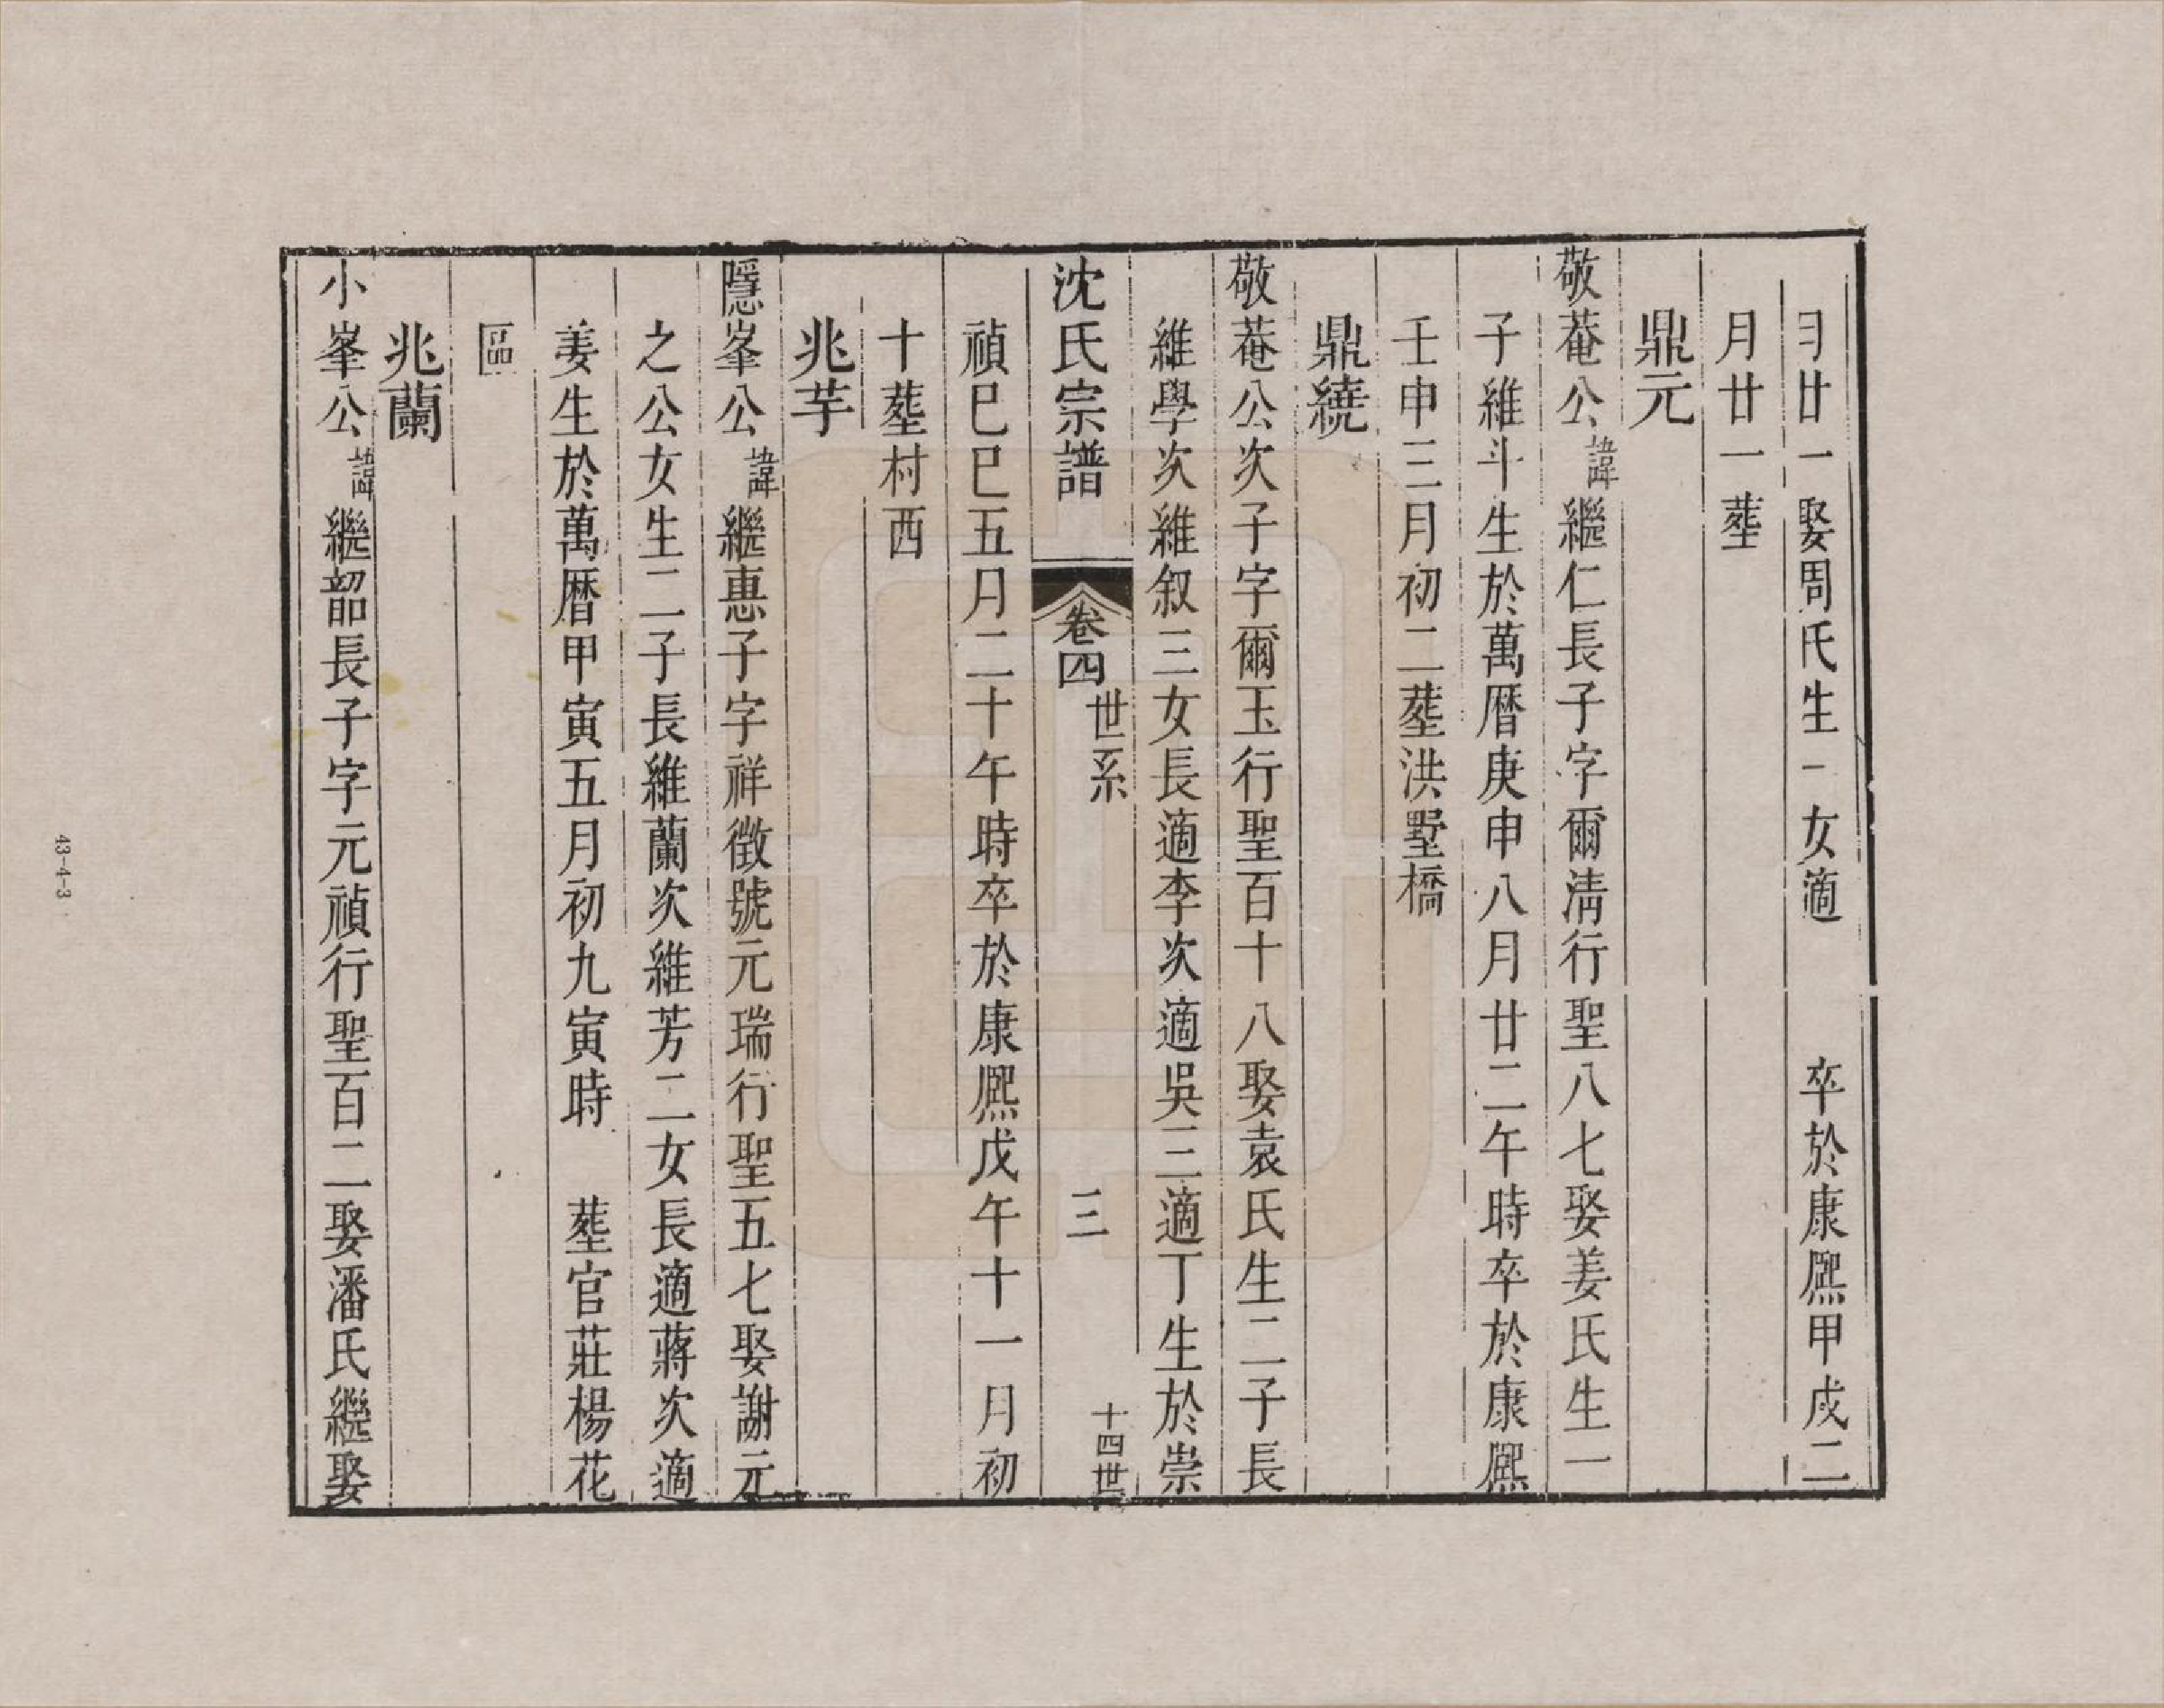 月廿一娶周氏生一女適　卒於康熈甲戌二
月廿一塟
鼎元
敬菴公諱繼仁長子字爾淸行聖八七娶姜氏生一
子維斗生於萬曆庚申八月廿二午時卒於康熈
壬申三月初二塟洪墅橋
鼎繞
敬菴公次子字爾玉行聖百十八娶袁氏生二子長
維學次維叙三女長適李次適吳三適丁生於崇
沈氏宗譜　卷四　世系　三　十四世
禎巳巳五月二十午時卒於康熈戊午十一月初
十塟村西
兆芋
隱峯公諱繼惠子字祥徵號元瑞行聖五七娶謝元
之公女生二子長維蘭次維芳二女長適蔣次適
姜生於萬曆甲寅五月初九寅時　塟官莊楊花
區
兆蘭
小峯公諱繼韶長子字元禎行聖百二娶潘氏繼娶
43-4-3